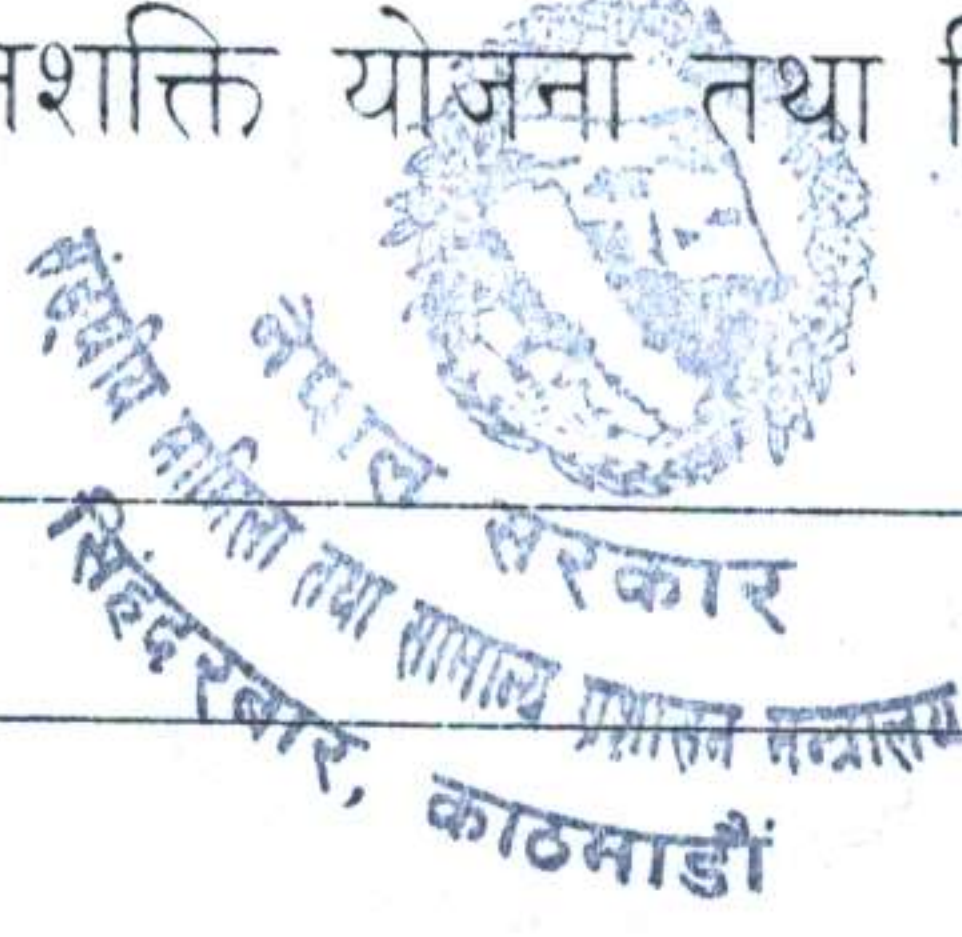 नशक्ति योजना तथा
नेपाल सरकार
सङ्घीय मामिला तथा सामान्य प्रशासन मन्त्रालय
सिंहदरबार, काठमाडौं